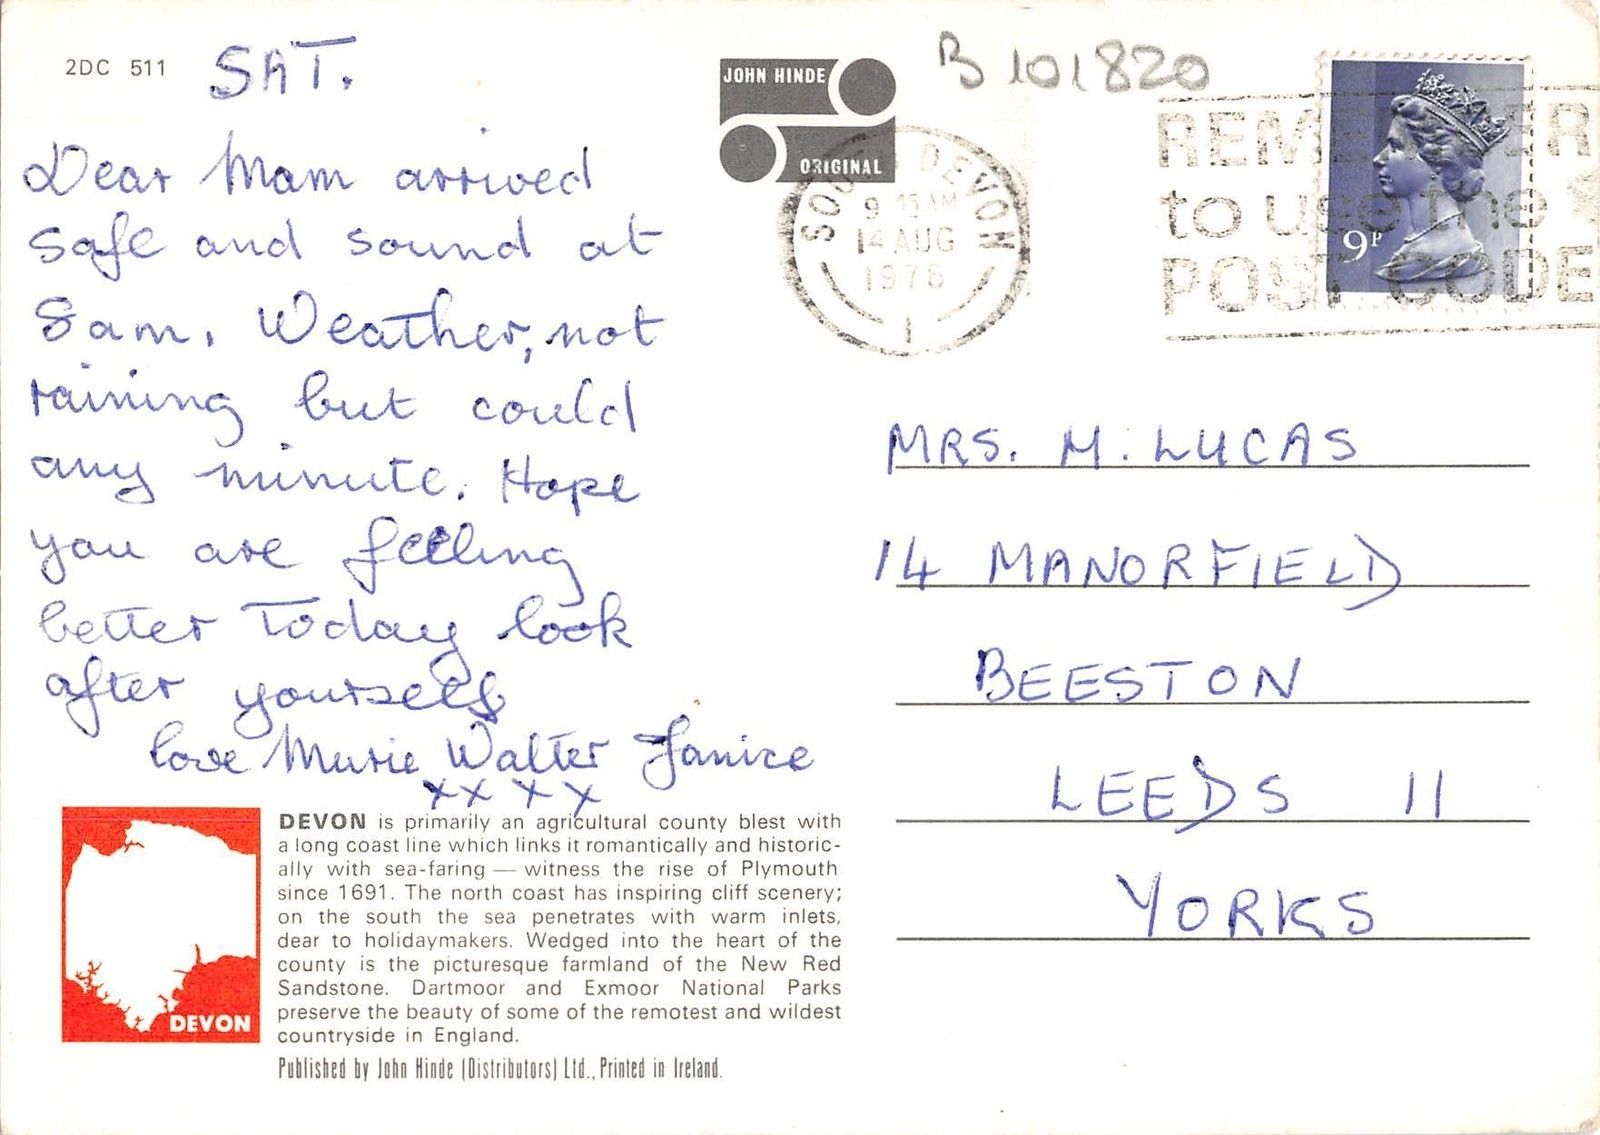 2DC 511
SAT.
Dear Mam arrived
safe and sound at
8am. Weather, not
raining but could
any minute. Hope
you are feeling
better Today look
after yourself
love Marie Walter Janice
xx xx
DEVON is primarily an agricultural county blest with
a long coast line which links it romantically and historic-
ally with sea-faring — witness the rise of Plymouth
since 1691. The north coast has inspiring cliff scenery;
on the south the sea penetrates with warm inlets,
dear to holidaymakers. Wedged into the heart of the
county is the picturesque farmland of the New Red
Sandstone. Dartmoor and Exmoor National Parks
preserve the beauty of some of the remotest and wildest
countryside in England.
DEVON
Published by John Hinde (Distributors) Ltd., Printed in Ireland.
JOHN HINDE
ORIGINAL
B 101820
SOUTH DEVON
9 15AM
14 AUG
1978
1
REMEMBER
to use the
POST CODE
9P
MRS. M. LUCAS
14 MANORFIELD
BEESTON
LEEDS 11
YORKS